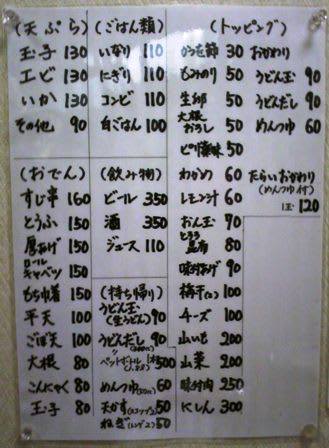 (天ぷら)
玉子 130
エビ 130
いか 130
その他 90
(おでん)
すじ串 160
とうふ 150
厚あげ 150
ロールキャベツ 150
もち巾着 150
平天 100
ごぼ天 100
大根 80
こんにゃく 80
玉子 80
(ごはん類)
いなり 110
にぎり 110
コンビ 110
白ごはん 100
(飲み物)
ビール 350
酒 350
ジュース 110
(持ち帰り)
うどん玉
(生うどん) 90
うどんだし 90
ペットボトル 500
めんつゆ 60
天かす 50
ねぎ 50
(トッピング)
かつを節 30
もみのり 50
生卵 50
大根おろし 50
ピリ辛味 50
わかめ 60
レモン汁 60
おん玉 70
とろろ昆布 80
味付あげ 90
梅干 100
チーズ 100
山いも 200
山菜 200
味付肉 250
にしん 300
おかわり
うどん玉 90
うどんだし 90
めんつゆ 60
たらいおかわり
(めんつゆ付)
1玉 120